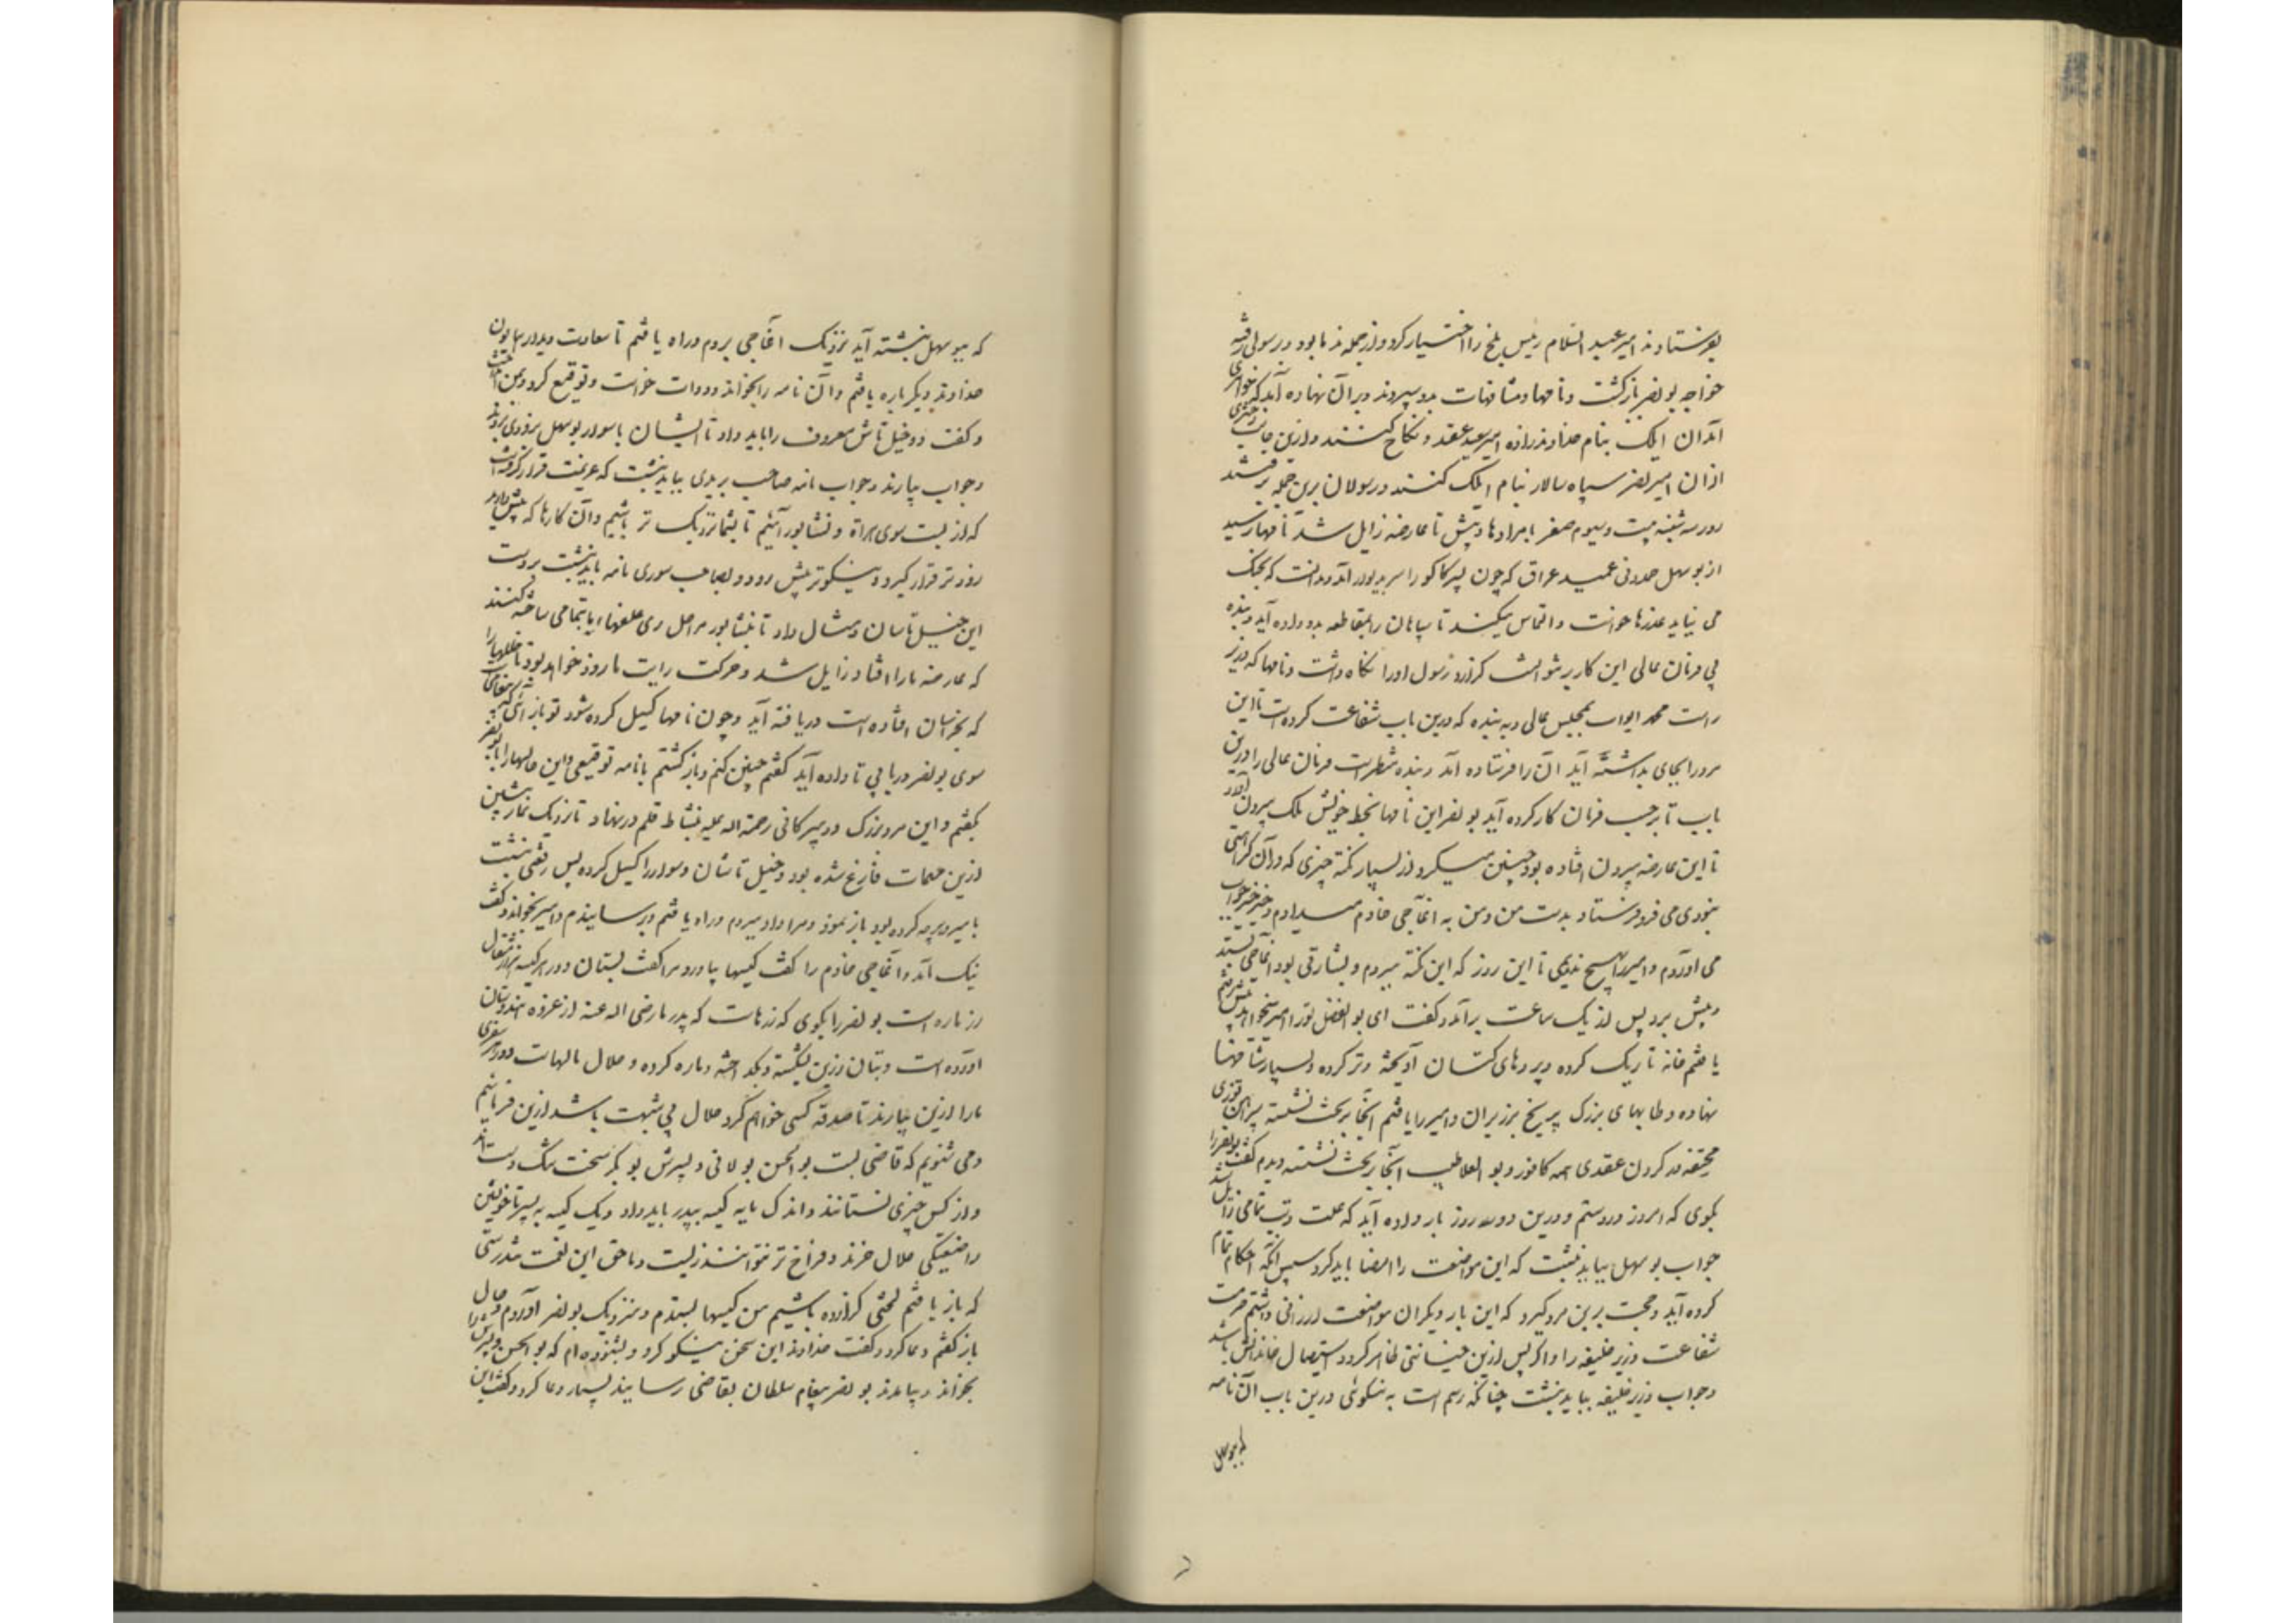 بفرستادند امیر عبد السلام رئیس بلخ را اختیار کرد و از جمله ندما بود و رسولی رفته
خواجه بو نصر بازگشت و نامها و مشافهات بدو سپردند و بر آن نهاده آید که خواهری
از آن ایلک بنام خداوندزاده امیر سعید عقد و نکاح کنند و ازین جانب دختری
از آن امیر نصر سپاه سالار بنام ایلک کنند و رسولان برین جمله برفتند
روز سه شنبه بیست و سیوم صفر با مرادها و پیش تا عارضه زایل شد نامها رسید
از بو سهل حمدونی عمید عراق که چون پسر کاکو را سر بدیوار آمد و بدانست که بجنک
می نیاید عذرها خواست و التماس میکند تا سپاهان را بمقاطعه بدو داده آید و بنده
بی فرمان عالی این کار بر نتوانست گزارد و رسول او را نگاه داشت و نامها که وزیر
راست محمد ایواب بمجلس عالی و به بنده که درین باب شفاعت کرده است تا این
مرد را بجای بداشته آید آن را فرستاده آمد و بنده منتظر است فرمان عالی را درین
باب تا بر حسب فرمان کار کرده آید بو نصر این نامها بخط خویش نکت بیرون آورد
تا این عارضه بیرون افتاده بود چنین میکرد و از بسیار نکته چیزی که در آن کراهتی
نبودی می فرو فرستاد بدست من و من به آغاجی خادم میدادم و خیر خیر جواب
می آوردم و امیر را هیچ ندیدمی تا این روز که این نکته ببردم و بشارتی بود آغاجی بستد
و پیش برد پس از یک ساعت برآمد و گفت ای بو الفضل تورا امیر میخواند پیش رفتم
یافتم خانه تاریک کرده و پردهای کتان آویخته و تر کرده و بسیار شاخها
نهاده و طاسهای بزرک پر یخ بر زبر آن و امیر را یافتم آنجا بر تخت نشسته پیراهن توزی
مخنقه در گردن عقدی همه کافور و بو العلا طبیب آنجا بر تخت نشسته دیدم گفت بو نصر را
بگوی که امروز درستم و درین دو سه روز بار داده آید که علت و تب تمامی زایل شد
جواب بو سهل بباید نبشت که این مواضعت را امضا باید کرد سپس آنکه احکام تمام
کرده آید و حجت برین مرد گیرد که این بار دیگر آن مواضعت ارزانی داشتیم حرمت
شفاعت وزیر خلیفه را و اگر پس ازین خیانتی ظاهر گردد استیصال خاندانش باشد
و جواب وزیر خلیفه بباید نبشت چنانکه رسم است به نیکوئی درین باب آن نامه
که ببو سهل
که ببو سهل نبشته آید نزدیک آغاجی بردم و راه یافتم تا سعادت دیدار همایون
خداوند دیگر باره یافتم و آن نامه را بخواند و دوات خواست و توقیع کرد و بمن انداخت
و گفت دو خیل تاش معروف را باید داد تا ایشان با سوار بو سهل بزودی بروند
و جواب بیارند و جواب نامه صاحب بریدی بباید نبشت که عزیمت قرار گرفته است
که از بست سوی هراة و نشابور آئیم تا بشما نزدیک تر باشیم و آن کارها که پیش دارید
زودتر قرار گیرد و نیکوتر پیش رود و بصاحب سوری نامه باید نبشت بر دست
این خیل تاشان و مثال داد تا بنشابور مراحل ری علفهاء بتمامی ساخته کنند
که عارضه ما را افتاد زایل شد و حرکت رایت ما زود خواهد بود تا خللها را
که بخراسان افتاده است دریافته آید و چون نامها گسیل کرده شود تو باز آی که پیغامی است
سوی بو نصر در بابی تا داده آید گفتم چنین کنم و باز گشتم با نامه توقیعی و این حالها را با بو نصر
بگفتم و این مرد بزرک و دبیر کافی رحمة الله علیه بنشاط قلم در نهاد تا نزدیک نماز پیشین
ازین مهمات فارغ شده بود و خیل تاشان و سوار را گسیل کرده پس رقعتی نبشت
بامیر و هر چه کرده بود باز نمود و مرا داد ببردم و راه یافتم و برسانیدم و امیر بخواند و گفت
نیک آمد و آغاجی خادم را گفت کیسها بیاورد مرا گفت بستان و در هر کیسه هزار مثقال
زر پاره است بو نصر را بگوی که زرهاست که پدر ما رضی الله عنه از غزوه هندوستان
آورده است و بتان زرین شکسته و بگداخته و پاره کرده و حلال مالهاست و در هر سفری
ما را ازین بیارند تا صدقه کسی خواهم کرد حلال بی شبهت باشد ازین فرمائیم
و می شنویم که قاضی بست بو الحسن بولانی و پسرش بو بکر سخت تنگ دست اند
و از کس چیزی نستانند و اندک مایه کیسه بپدر باید داد و یک کیسه به پسر تا خویشتن
را ضیعتکی حلال خرند و فراخ تر نتوانند زیست و ما حق این نعمت تندرستی
که باز یافتم لختی گزارده باشیم من کیسها بستدم و بنزدیک بو نصر آوردم و حال
باز گفتم دعا کرد و گفت خداوند این سخن نیکو کرد و بشنوده ام که بو الحسن و پسرش را
بخواند و بیامدند بو نصر پیغام سلطان بقاضی رسانید بسیار دعا کرد و گفت این